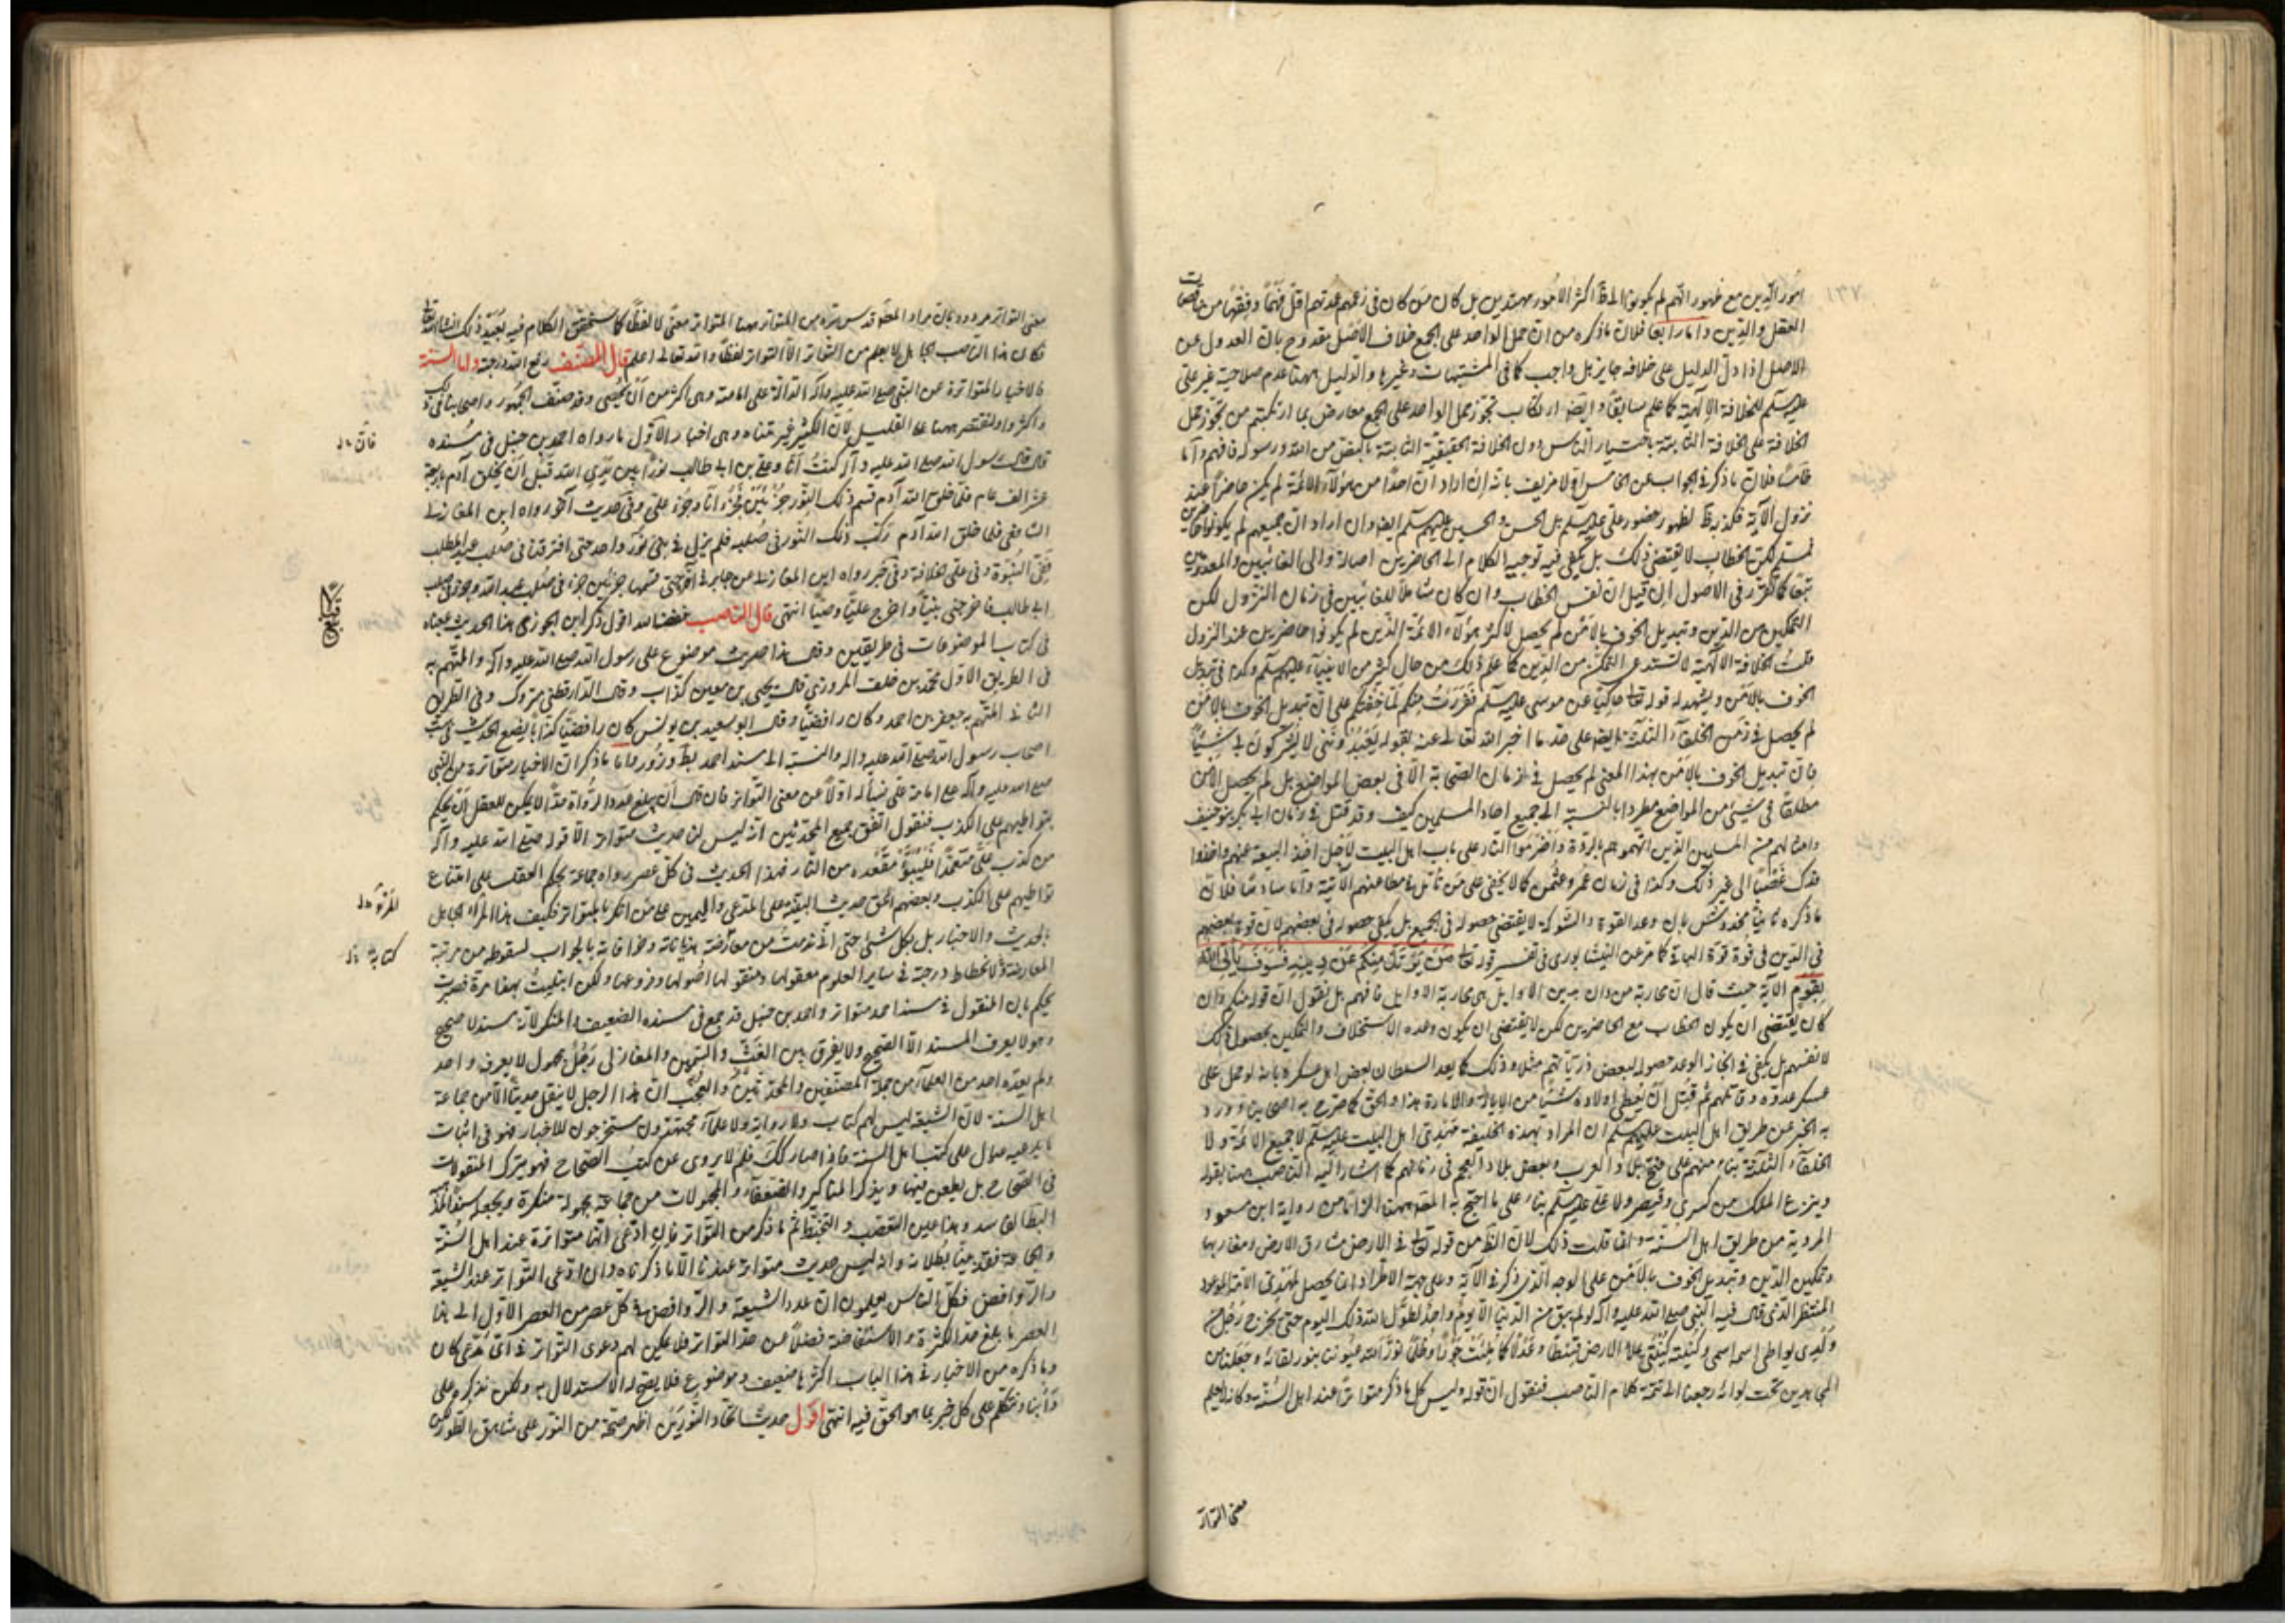 امور الدين مع ظهور انهم لم يكونوا في اكثر الامور مهتدين بل كان من كان في زعمهم عمدتهم اقل فهما وفقها من ناقصات
العقل والدين واما رابعا فلان ما ذكره من ان حمل الواحد على الجمع خلاف الاصل مقدوح بان العدول عن
الاصل اذا دل الدليل على خلافه جايز بل واجب كما في المتشابهات وغيرها والدليل ههنا عدم صلاحية غير علي
عليه السلم للخلافة الالهية كما علم سابقا وايضا ارتكاب تجوز حمل الواحد على الجمع معارض بما ارتكبتم من تجوز حمل
الخلافة على الخلافة الثابتة باختيار الناس دون الخلافة الحقيقية الثابتة بالنص من الله ورسوله فافهم واما
خامسا فلان ما ذكره في الجواب عن الخامس اولا مزيف بانه ان اراد ان احدا من هؤلاء الائمة لم يكن حاضرا عند
نزول الآية فكذبه ظ لظهور حضور علي عليه السلم بل الحسن والحسين عليهم السلم ايضا وان اراد ان جميعهم لم يكونوا حاضرين
فمسلم لكن الخطاب لا يقتضي ذلك بل يكفي فيه توجيه الكلام الى الحاضرين اصالة والى الغائبين والمعدومين
تبعا كما تقرر في الاصول ان قيل ان نفس الخطاب وان كان شاملا للغائبين في زمان النزول لكن
التمكين من الدين وتبديل الخوف بالامن لم يحصل لاكثر هؤلاء الائمة الذين لم يكونوا حاضرين عند النزول
قلت الخلافة الالهية لا تستدعي التمكن من الدين كما علم ذلك من حال كثير من الانبياء عليهم السلم وكذا في تبديل
الخوف بالامن ويشهد له قوله تعالى حاكيا عن موسى عليه السلم ففررت منكم لما خفتكم على ان تبديل الخوف بالامن
لم يحصل في زمن الخلفاء الثلثة ايضا على حد ما اخبر الله تعالى عنه بقوله يعبدونني لا يشركون بي شيئا
فان تبديل الخوف بالامن بهذا المعنى لم يحصل في زمان الصحابة الا في بعض المواضع بل لم يحصل الامن
مطلقا في شيء من المواضع مطردا بالنسبة الى جميع احاد المسلمين كيف وقد قتل في زمان ابي بكر بنو حنيف
وامثالهم من المسلمين الذين اتهموهم بالردة واضرموا النار على باب اهل البيت لاجل اخذ البيعة عنهم واخذوا
فدك غصبا الى غير ذلك وكذا في زمان عمر وعثمن كما لا يخفى على من تأمل في مطاعنهم الآتية واما سادسا فلان
ما ذكره ثانيا مخدوش بان وعد القوة والشوكة لا يقتضي حصوله في الجميع بل يكفي حصوله في بعضهم لان قوة بعضهم
في الدين في قوة قوة الباقي كما مر عن النيشابوري في تفسير قوله تعالى من يرتد منكم عن دينه فسوف يأتي الله
بقوم الآية حيث قال ان محاربة من دان بدين الاوايل هي محاربة الاوايل فافهم بل نقول ان قوله منكم وان
كان يقتضي ان يكون الخطاب مع الحاضرين لكن لا يقتضي ان يكون وعده الاستخلاف والتمكين بحصول ذلك
لانفسهم بل يكفي في انجاز الوعد حصوله لبعض ذرياتهم مثلا وذلك كما يعد السلطان بعض اهل عسكره بانه لو حمل على
عسكر عدوه وقاتلهم ثم قتل ان يعطي اولاده شيئا من الايالة والامارة هذا والحق كما صرح به اصحابنا وورد
به الخبر عن طريق اهل البيت عليهم السلم ان المراد بهذه الخليفة مهدي اهل البيت عليه السلم لا جميع الائمة ولا
الخلفاء الثلثة بناء منهم على فتح بلاد العرب وبعض بلاد العجم في زمانهم كما اشار اليه الناصب ههنا بقوله
وينزع الملك من كسرى وقيصر ولا علي عليه السلم بناء على ما احتج به المصنف ههنا الزاما من رواية ابن مسعود
المروية من طريق اهل السنة وانما قلت ذلك لان الظ من قوله تعالى في الارض مشارق الارض ومغاربها
وتمكين الدين وتبديل الخوف بالامن على الوجه الذي ذكر في الآية وعلى جهة الاطراد انما يحصل لمهدي الامة الموعود
المنتظر الذي قال فيه النبي صلى الله عليه وآله لو لم يبق من الدنيا الا يوم واحد لطول الله ذلك اليوم حتى يخرج رجل من
ولدي يواطي اسمه اسمي وكنيته كنيتي يملا الارض قسطا وعدلا كما ملئت جورا وظلما نور الله عيوننا بنور لقائه وجعلنا من
المجاهدين تحت لوائه رجعنا الى تتمة كلام الناصب فنقول ان قوله وليس كل ما ذكر متواترا عند اهل السنة وكانه لم يعلم
معنى التواتر
معنى التواتر مردود بان مراد المصنف قدس سره من المتواتر ههنا المتواتر معنى لا لفظا كما ستحقق الكلام فيه بعيد ذلك انشاء الله تعالى
فكان هذا الناصب الجاهل لا يعلم من التواتر الا التواتر لفظا والله تعالى اعلم قال المصنف رفع الله درجته واما السنة
فالاخبار المتواترة عن النبي صلى الله عليه وآله الدالة على امامته وهي اكثر من ان يحصى وقد صنف الجمهور واصحابنا في ذلك
واكثروا ولنقتصر ههنا على القليل لان الكثير غير متناه وهي اخبار الاول ما رواه احمد بن حنبل في مسنده
قال قال رسول الله صلى الله عليه وآله كنت انا وعلي بن ابي طالب نورا بين يدي الله قبل ان يخلق آدم باربعة
عشر الف عام فلما خلق الله آدم قسم ذلك النور جزئين فجزء انا وجزء علي وفي حديث آخر رواه ابن المغازلي
الشافعي فلما خلق الله آدم ركب ذلك النور في صلبه فلم يزل في شيء واحد حتى افترقنا في صلب عبد المطلب
ففي النبوة وفي علي الخلافة وفي خبر رواه ابن المغازلي عن جابر في آخره حتى قسمها جزئين جزء في صلب عبد الله وجزء في صلب
ابي طالب فاخرجني نبيا واخرج عليا وصيا انتهى قال الناصب خفضه الله اقول ذكر ابن الجوزي هذا الحديث بمعناه
في كتاب الموضوعات في طريقين وقال هذا حديث موضوع على رسول الله صلى الله عليه وآله والمتهم به
في الطريق الاول محمد بن خلف المروزي قال يحيى بن معين كذاب وقال الدارقطني متروك وفي الطريق
الثاني المتهم به جعفر بن احمد وكان رافضيا وقال ابو سعيد بن يونس كان رافضيا كذابا يضع الحديث في سب
اصحاب رسول الله صلى الله عليه واله والنسبة الى مسند احمد بط وزور واما ما ذكر ان الاخبار متواترة من النبي
صلى الله عليه وآله على امامة علي فنسأله اولا عن معنى التواتر فان قال ان يبلغ عدد الرواة حدا لا يمكن للعقل ان يحكم
بتواطيهم على الكذب فنقول اتفق جميع المحدثين انه ليس لنا حديث متواتر الا قوله صلى الله عليه وآله
من كذب علي متعمدا فليتبوأ مقعده من النار فهذا الحديث في كل عصر رواه جماعة يحكم العقل على امتناع
تواطيهم على الكذب وبعضهم الحق حديث البينة على المدعي واليمين على من انكر بالمتواتر فكيف هذا المرء الجاهل
بالحديث والاخبار بل بكل شيء حتى اني ندمت من معارضة هذياناته وخرافاته بالجواب لسقوطه من مرتبة
المعارضة لانحطاط درجته في ساير العلوم معقولها ومنقولها اصولها وفروعها ولكن ابتليت بهذا مرة فصبرت
يحكم بان المنقول في مسند احمد متواتر واحمد بن حنبل قد جمع في مسنده الضعيف والمنكر لانه مسند لا صحيح
وهو لا يعرف المسند الا الصحيح ولا يفرق بين الغث والسمين والمغازلي رجل مجهول لا يعرفه احد
ولم يعده احد من العلماء من جملة المصنفين والمحدثين والعجب ان هذا الرجل لا ينقل حديثا الا من جماعة
اهل السنة لان الشيعة ليس لهم كتاب ولا رواية ولا علماء مجتهدون مستخرجون للاخبار فهو في اثبات
ما يدعيه عيال على كتب اهل السنة فاذا صار كذلك فلم لا يروي عن كتب الصحاح فهو يترك المنقولات
في الصحاح بل يطعن فيها ويذكر المناكير والضعفاء والمجهولات من جماعة مجهولة منكرة ويجعله سندا لمذهبه
الباطل الفاسد وهذا عين التعصب والتخبط ثم ما ذكر من التواتر فان ادعى انها متواترة عند اهل السنة
والجماعة فقد بينا بطلانه وانه ليس حديث متواتر عندنا الا ما ذكرناه وان ادعى التواتر عند الشيعة
والروافض فكل الناس يعلمون ان عدد الشيعة والروافض في كل عصر من العصر الاول الى هذا
العصر ما بلغ حد الكثرة والاستفاضة فضلا عن حد التواتر فلا يمكن لهم دعوى التواتر في اي مدعى كان
وما ذكره من الاخبار في هذا الباب اكثرها ضعيف وموضوع فلا يصح له الاستدلال به ولكن نذكره على
دأبنا ونتكلم على كل خبر بما هو الحق فيه انتهى اقول حديث اتحاد النورين اظهر صحة من النور على شاهق الطور